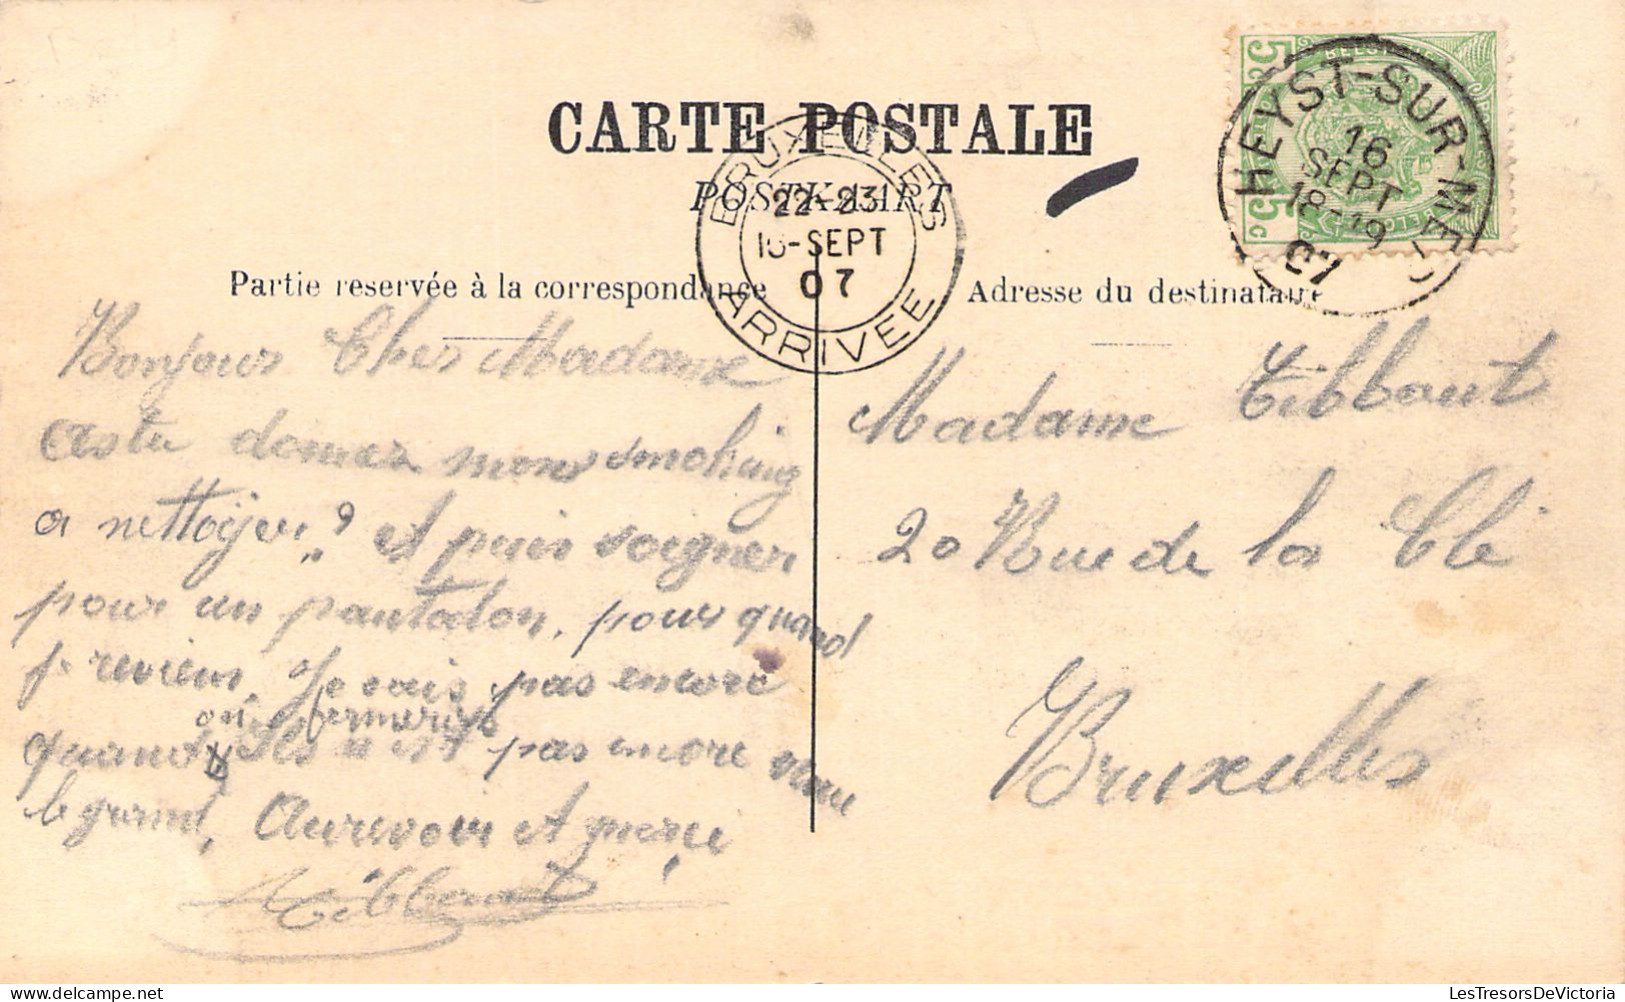 CARTE POSTALE
POSTKAART
BRUXELLES
22-23
16-SEPT
07
ARRIVEE
BELGIQUE
5 c 5 c
HEYST-SUR-MER
16
SEPT
18-19
07
Partie reservée à la correspondance
Adresse du destinataire
Bonjour Cher Madame
astu donner mon smoking
a nettoyer? et puis soigner
pour un pantalon, pour quand
je reviens. Je sais pas encore
on fermeras
quand ils est pas encore venu
le grand, Aurevoir et
Tibbaut
Madame Tibbaut
20 Rue de la Clé
Bruxelles
LesTresorsDeVictoria